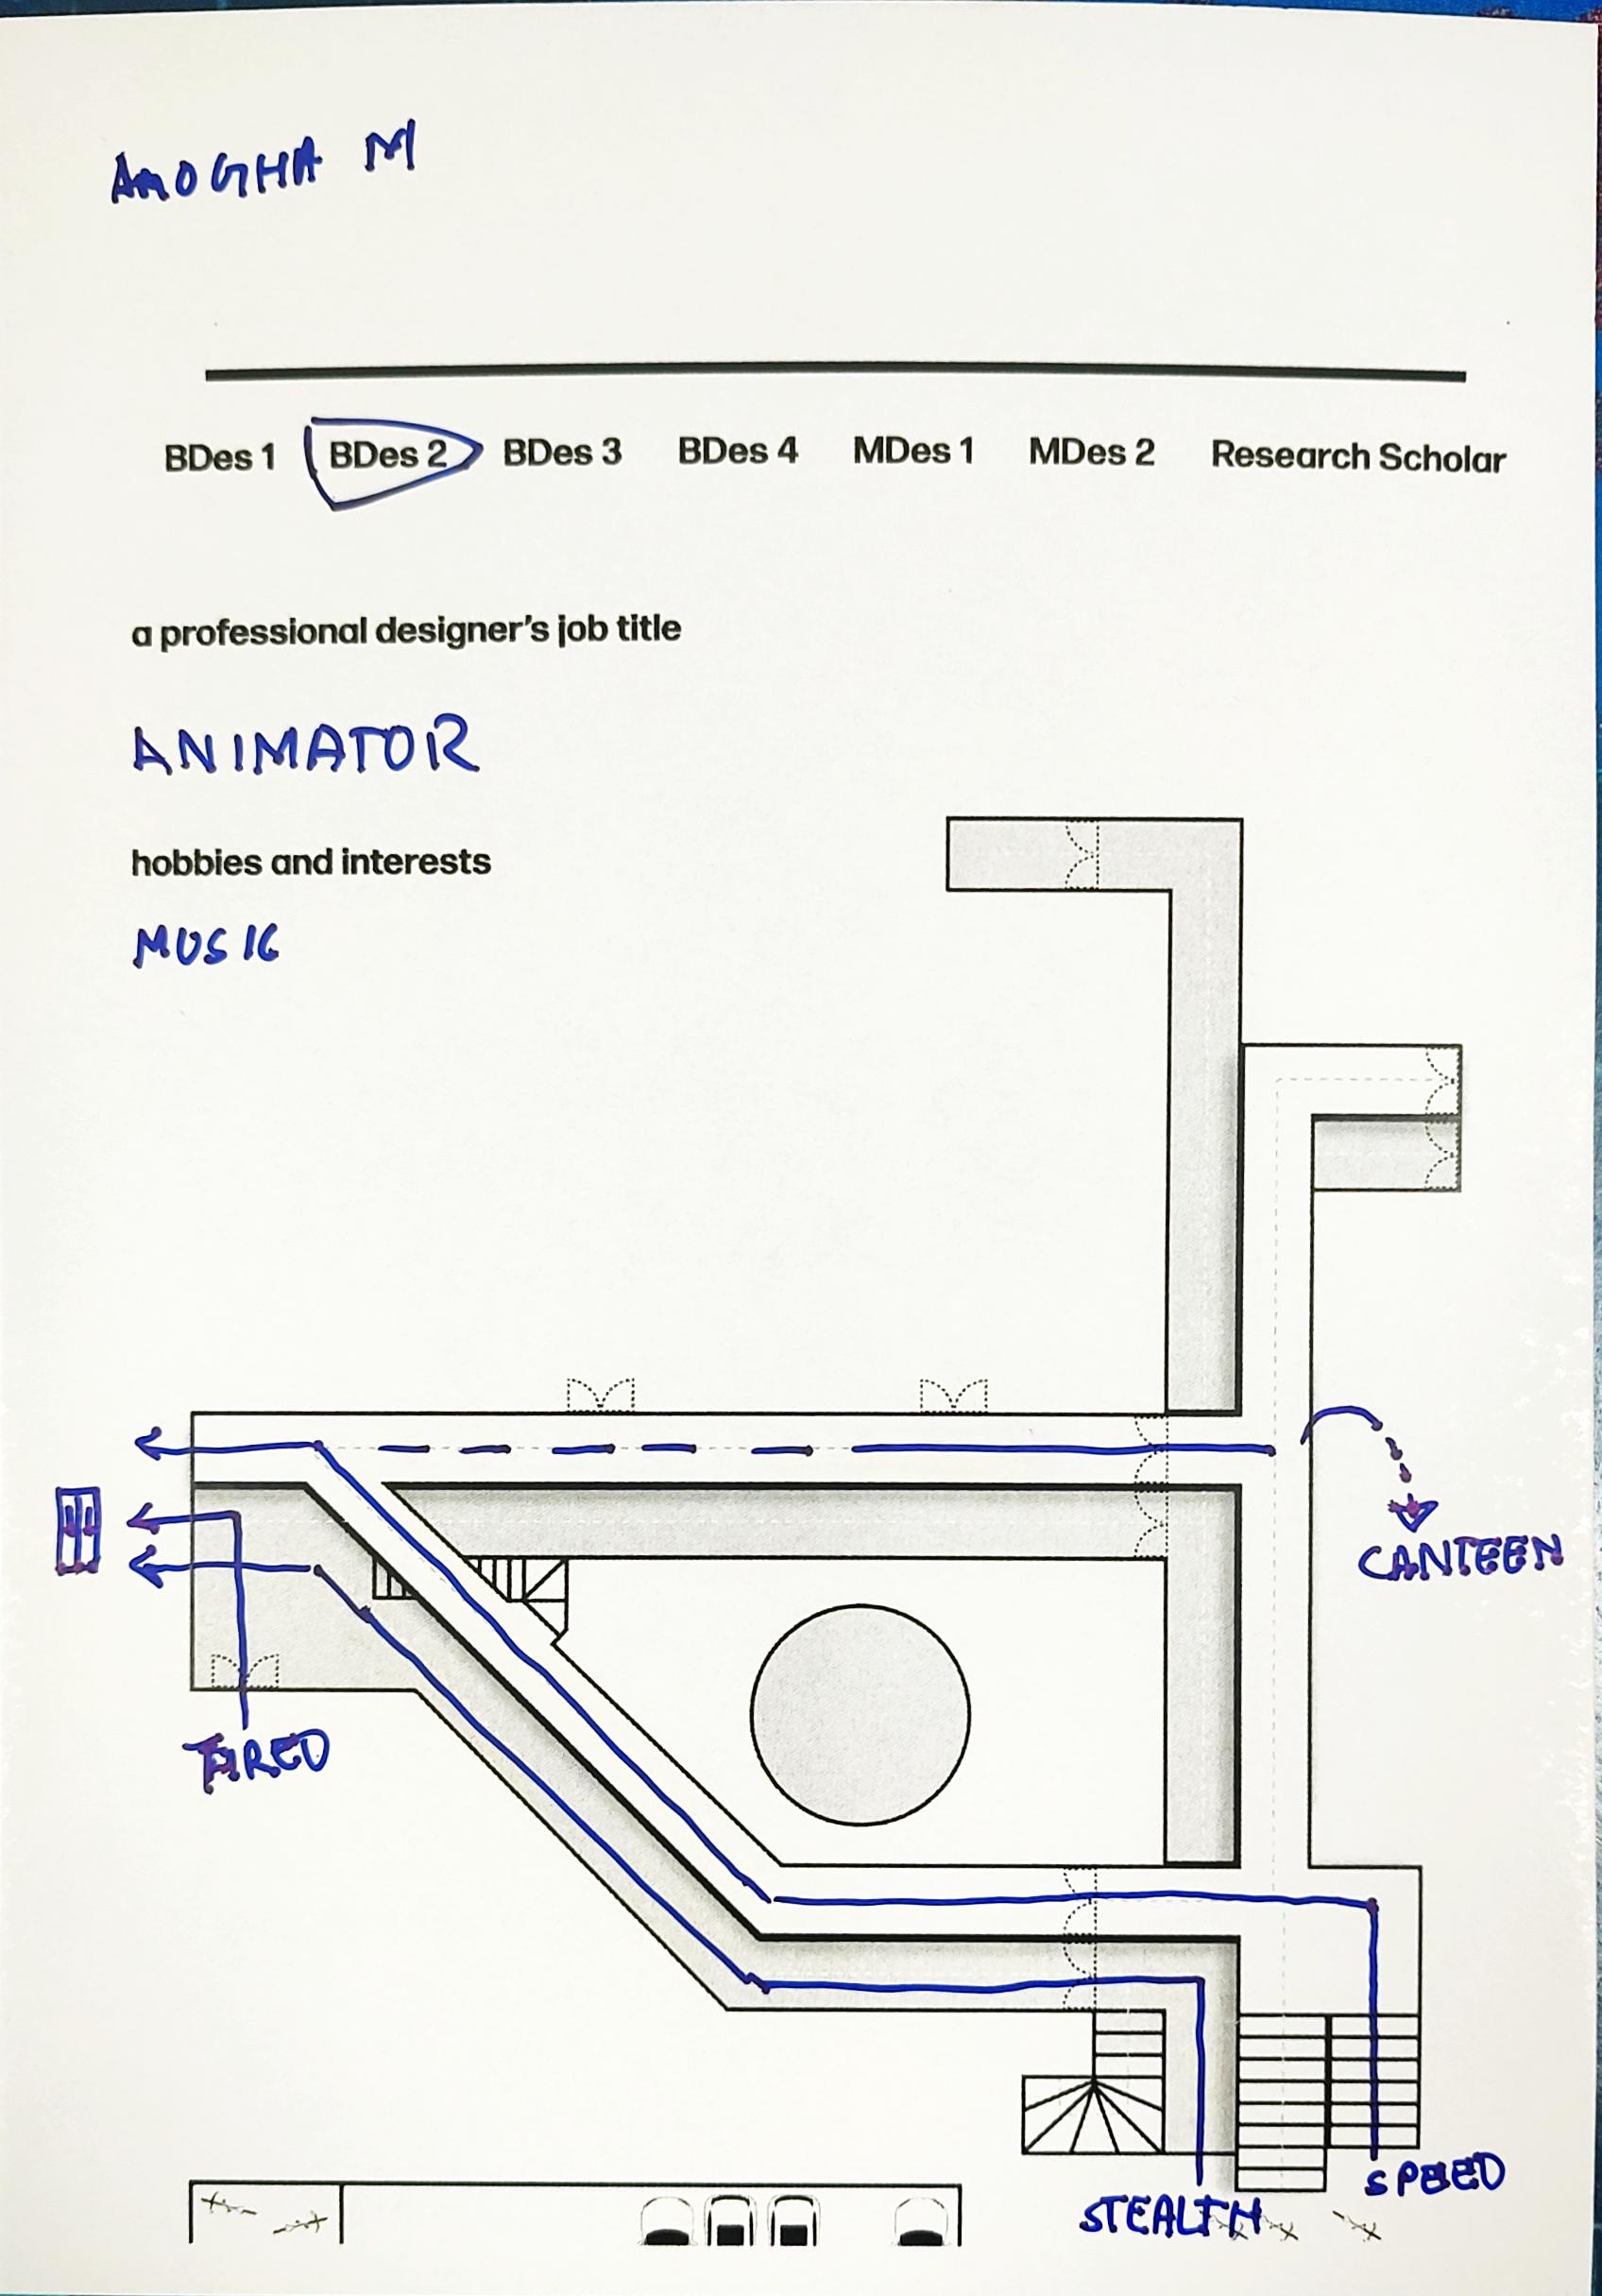 AMOGHA M
BDes 1 BDes 2 BDes 3 BDes 4 MDes 1 MDes 2 Research Scholar
a professional designer's job title
ANIMATOR
hobbies and interests
MUSIC
CANTEEN
TIRED
SPEED
STEALTH